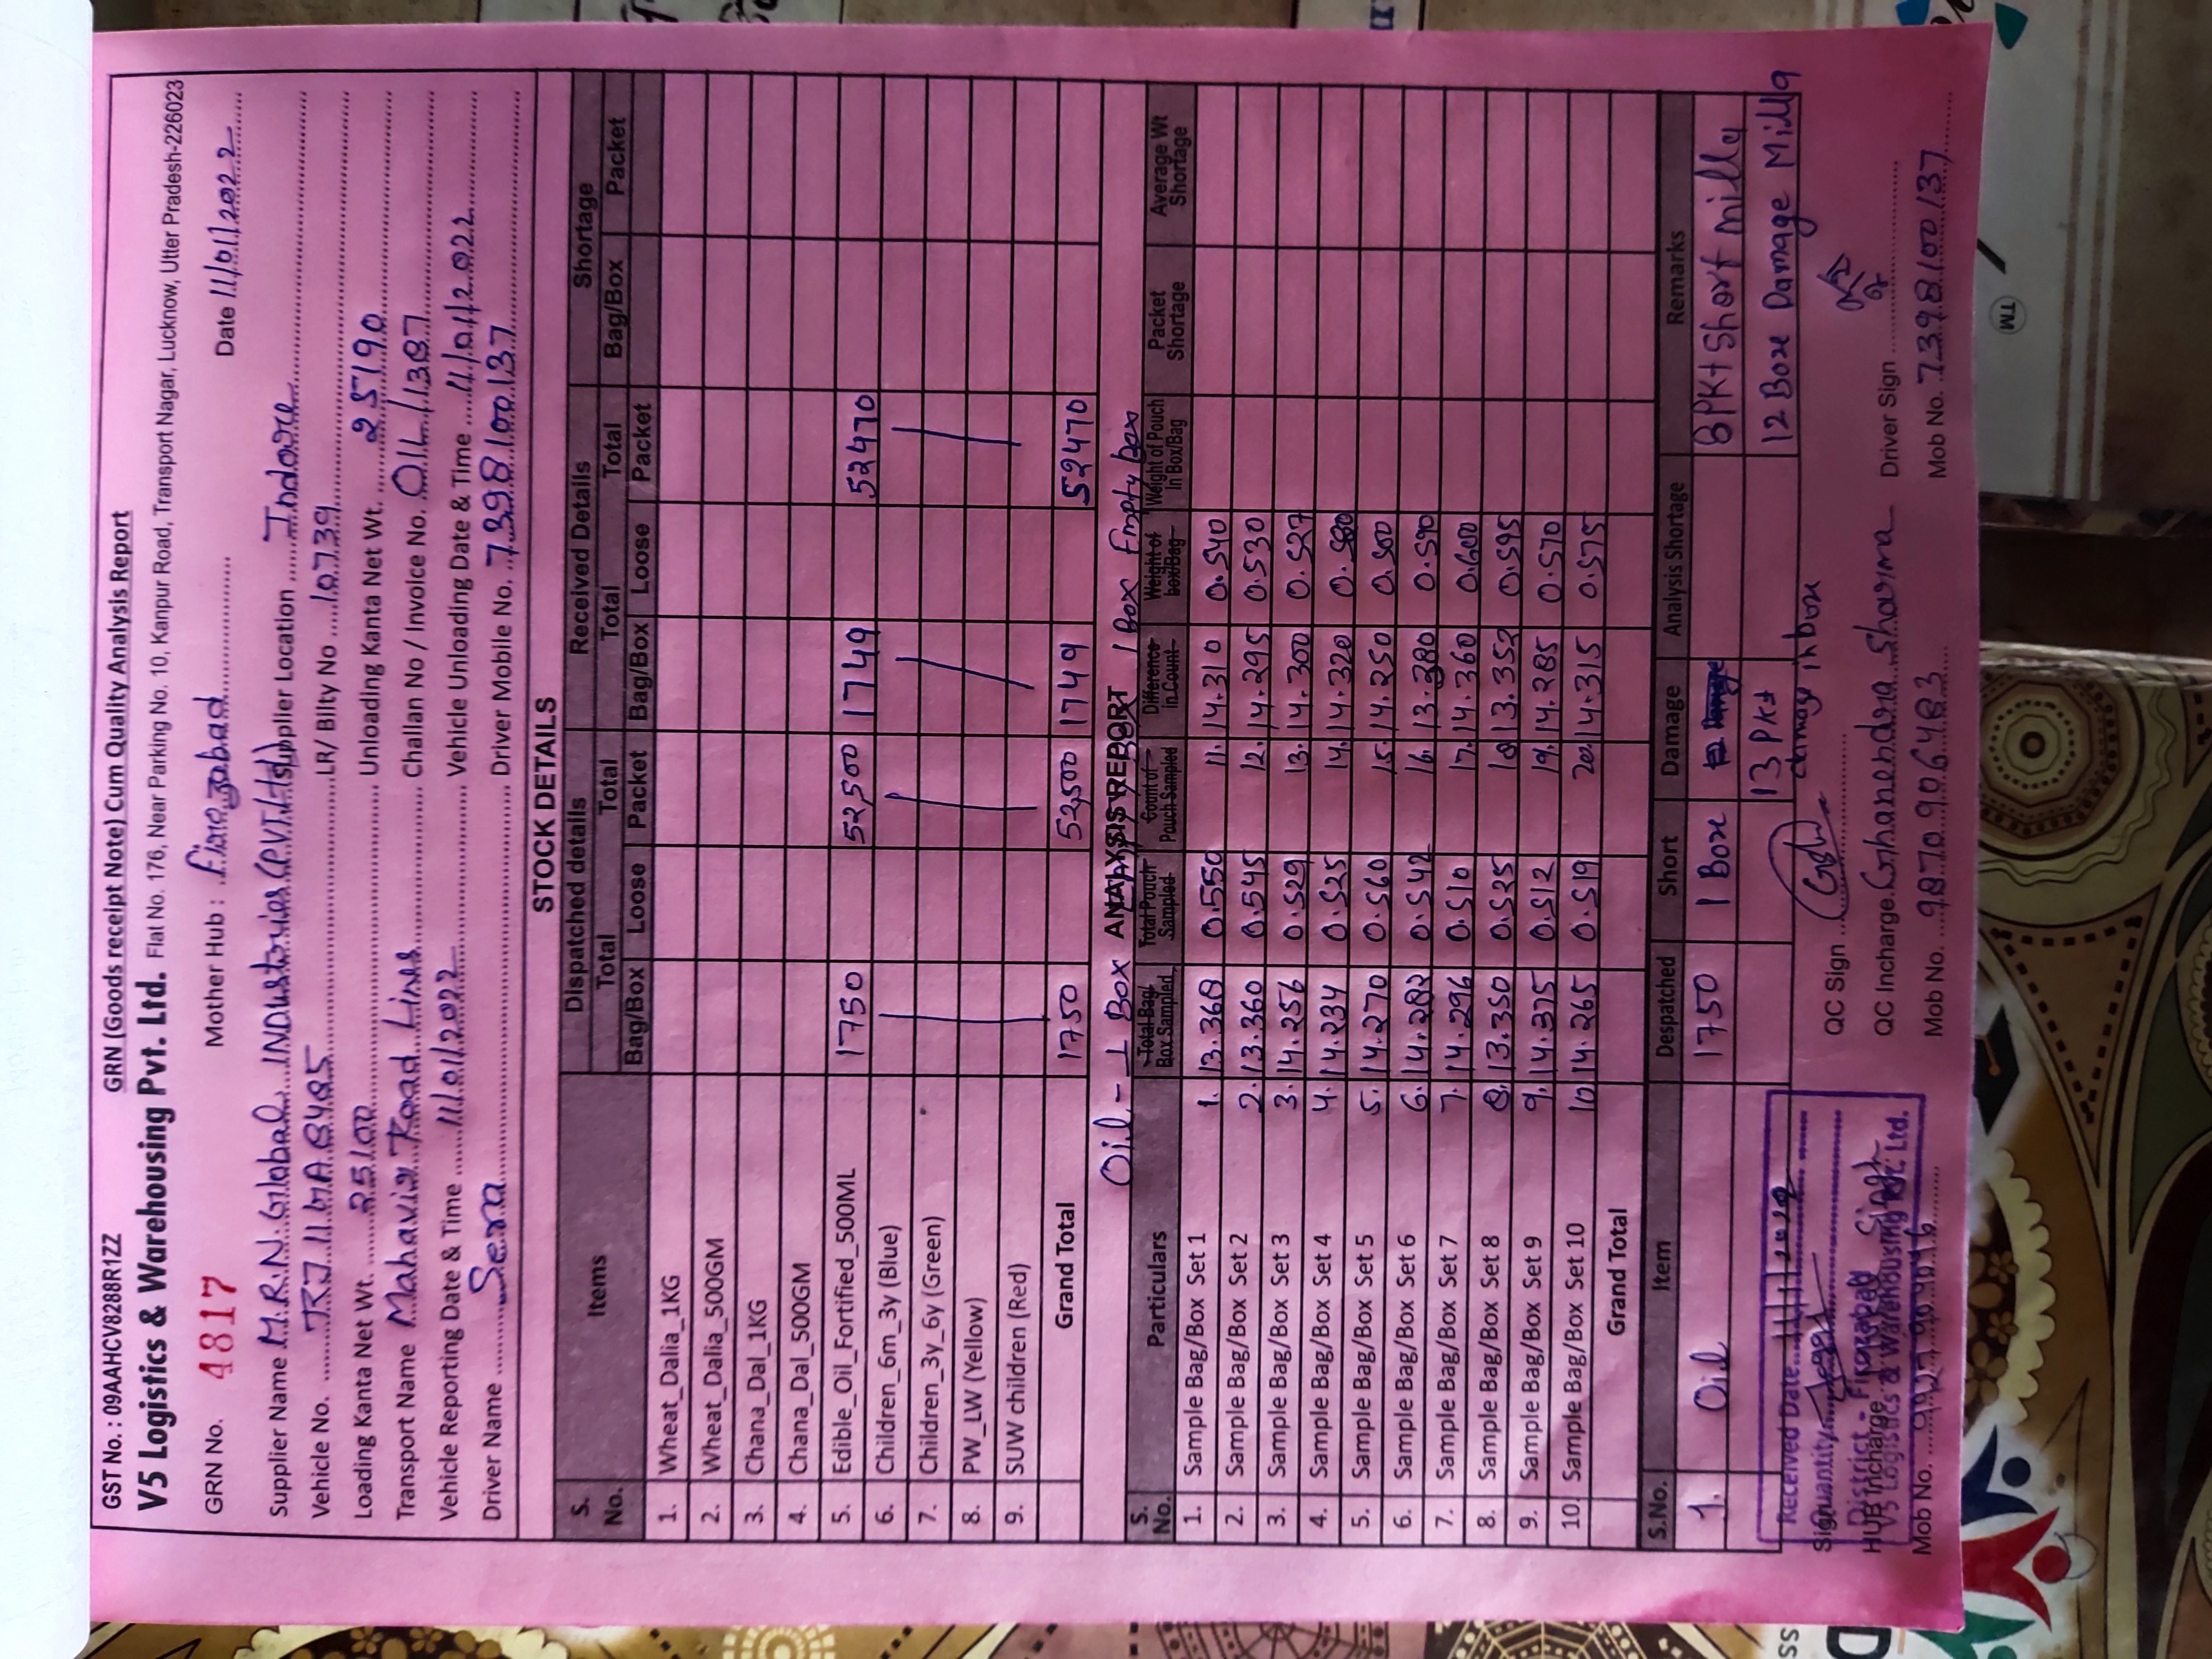 GST No. : 09AAHCV8288R1ZZ GRN (Goods receipt Note) Cum Quality Analysis Report
V5 Logistics & Warehousing Pvt. Ltd. Flat No. 176, Near Parking No. 10, Kanpur Road, Transport Nagar, Lucknow, Utter Pradesh-226023
GRN No. 4817 Mother Hub : Firozabad Date 11/01/2022
Supplier Name M.R.N. Global INDUstries (PVT.Ltd) Supplier Location Indore
Vehicle No. LR/ Bilty No 10739
Loading Kanta Net Wt. 25100 Unloading Kanta Net Wt. 25190
Transport Name Mahavir Road Lines Challan No / Invoice No. OIL/1387
Vehicle Reporting Date & Time 11/01/2022 Vehicle Unloading Date & Time 11/01/2022
Driver Name Driver Mobile No. 7398100137
STOCK DETAILS
S. No. Items Dispatched details Received Details Shortage
Total Bag/Box Loose Total Packet Total Bag/Box Loose Total Packet Bag/Box Packet
1. Wheat_Dalia_1KG
2. Wheat_Dalia_500GM
3. Chana_Dal_1KG
4. Chana_Dal_500GM
5. Edible_Oil_Fortified_500ML 1750 52,500 1749 52470
6. Children_6m_3y (Blue)
7. Children_3y_6y (Green)
8. PW_LW (Yellow)
9. SUW children (Red)
Grand Total 1750 52,500 1749 52470
Oil - 1 Box ANALYSIS REPORT 1 Box Empty box
S. No. Particulars Total Bag/ Box Sampled Total Pouch Sampled Count of Pouch Sampled Difference in Count Weight of box/Bag Weight of Pouch In Box/Bag Packet Shortage Average Wt Shortage
1. Sample Bag/Box Set 1 1. 13.368 0.550 11. 14.310 0.540
2. Sample Bag/Box Set 2 2. 13.360 0.545 12. 14.295 0.530
3. Sample Bag/Box Set 3 3. 14.256 0.529 13. 14.300 0.527
4. Sample Bag/Box Set 4 4. 14.234 0.525 14. 14.320 0.580
5. Sample Bag/Box Set 5 5. 14.270 0.560 15. 14.250 0.500
6. Sample Bag/Box Set 6 6. 14.282 0.542 16. 13.380 0.590
7. Sample Bag/Box Set 7 7. 14.296 0.510 17. 14.360 0.600
8. Sample Bag/Box Set 8 8. 13.350 0.525 18 13.352 0.595
9. Sample Bag/Box Set 9 9. 14.375 0.512 19. 14.285 0.570
10 Sample Bag/Box Set 10 10 14.265 0.519 20. 14.315 0.575
Grand Total
S.No. Item Despatched Short Damage Analysis Shortage Remarks
1. Oil 1750 1 Box 8PKt Short Milla
13 PKt 12 Box Damage Milla
damage in box
Received Date
Sign QC Sign Driver Sign
Quantity
District - Firozabad
HUB Incharge QC Incharge Ghanendra Sharma
V5 Logistics & Warehousing Pvt. Ltd.
Mob No. Mob No. 9870906483 Mob No. 7398100137
TM